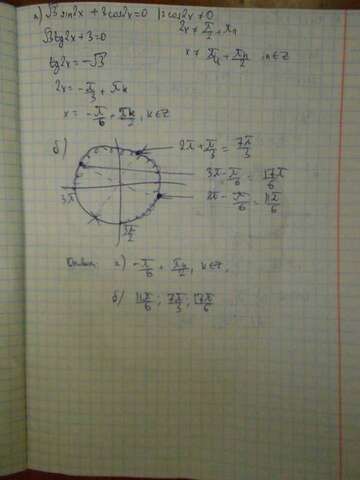 а) √3 sin2x + 3cos2x = 0 | : cos2x ≠ 0
2x ≠ π/2 + πn
√3 tg2x + 3 = 0
x ≠ π/4 + πn/2, n∈Z
tg2x = -√3
2x = -π/3 + πk
x = -π/6 + πk/2, k∈Z
б)
2π + π/3 = 7π/3
3π - π/6 = 17π/6
2π - π/6 = 11π/6
3π
3π/2
Ответ: а) -π/6 + πk/2, k∈Z,
б) 11π/6; 7π/3; 17π/6